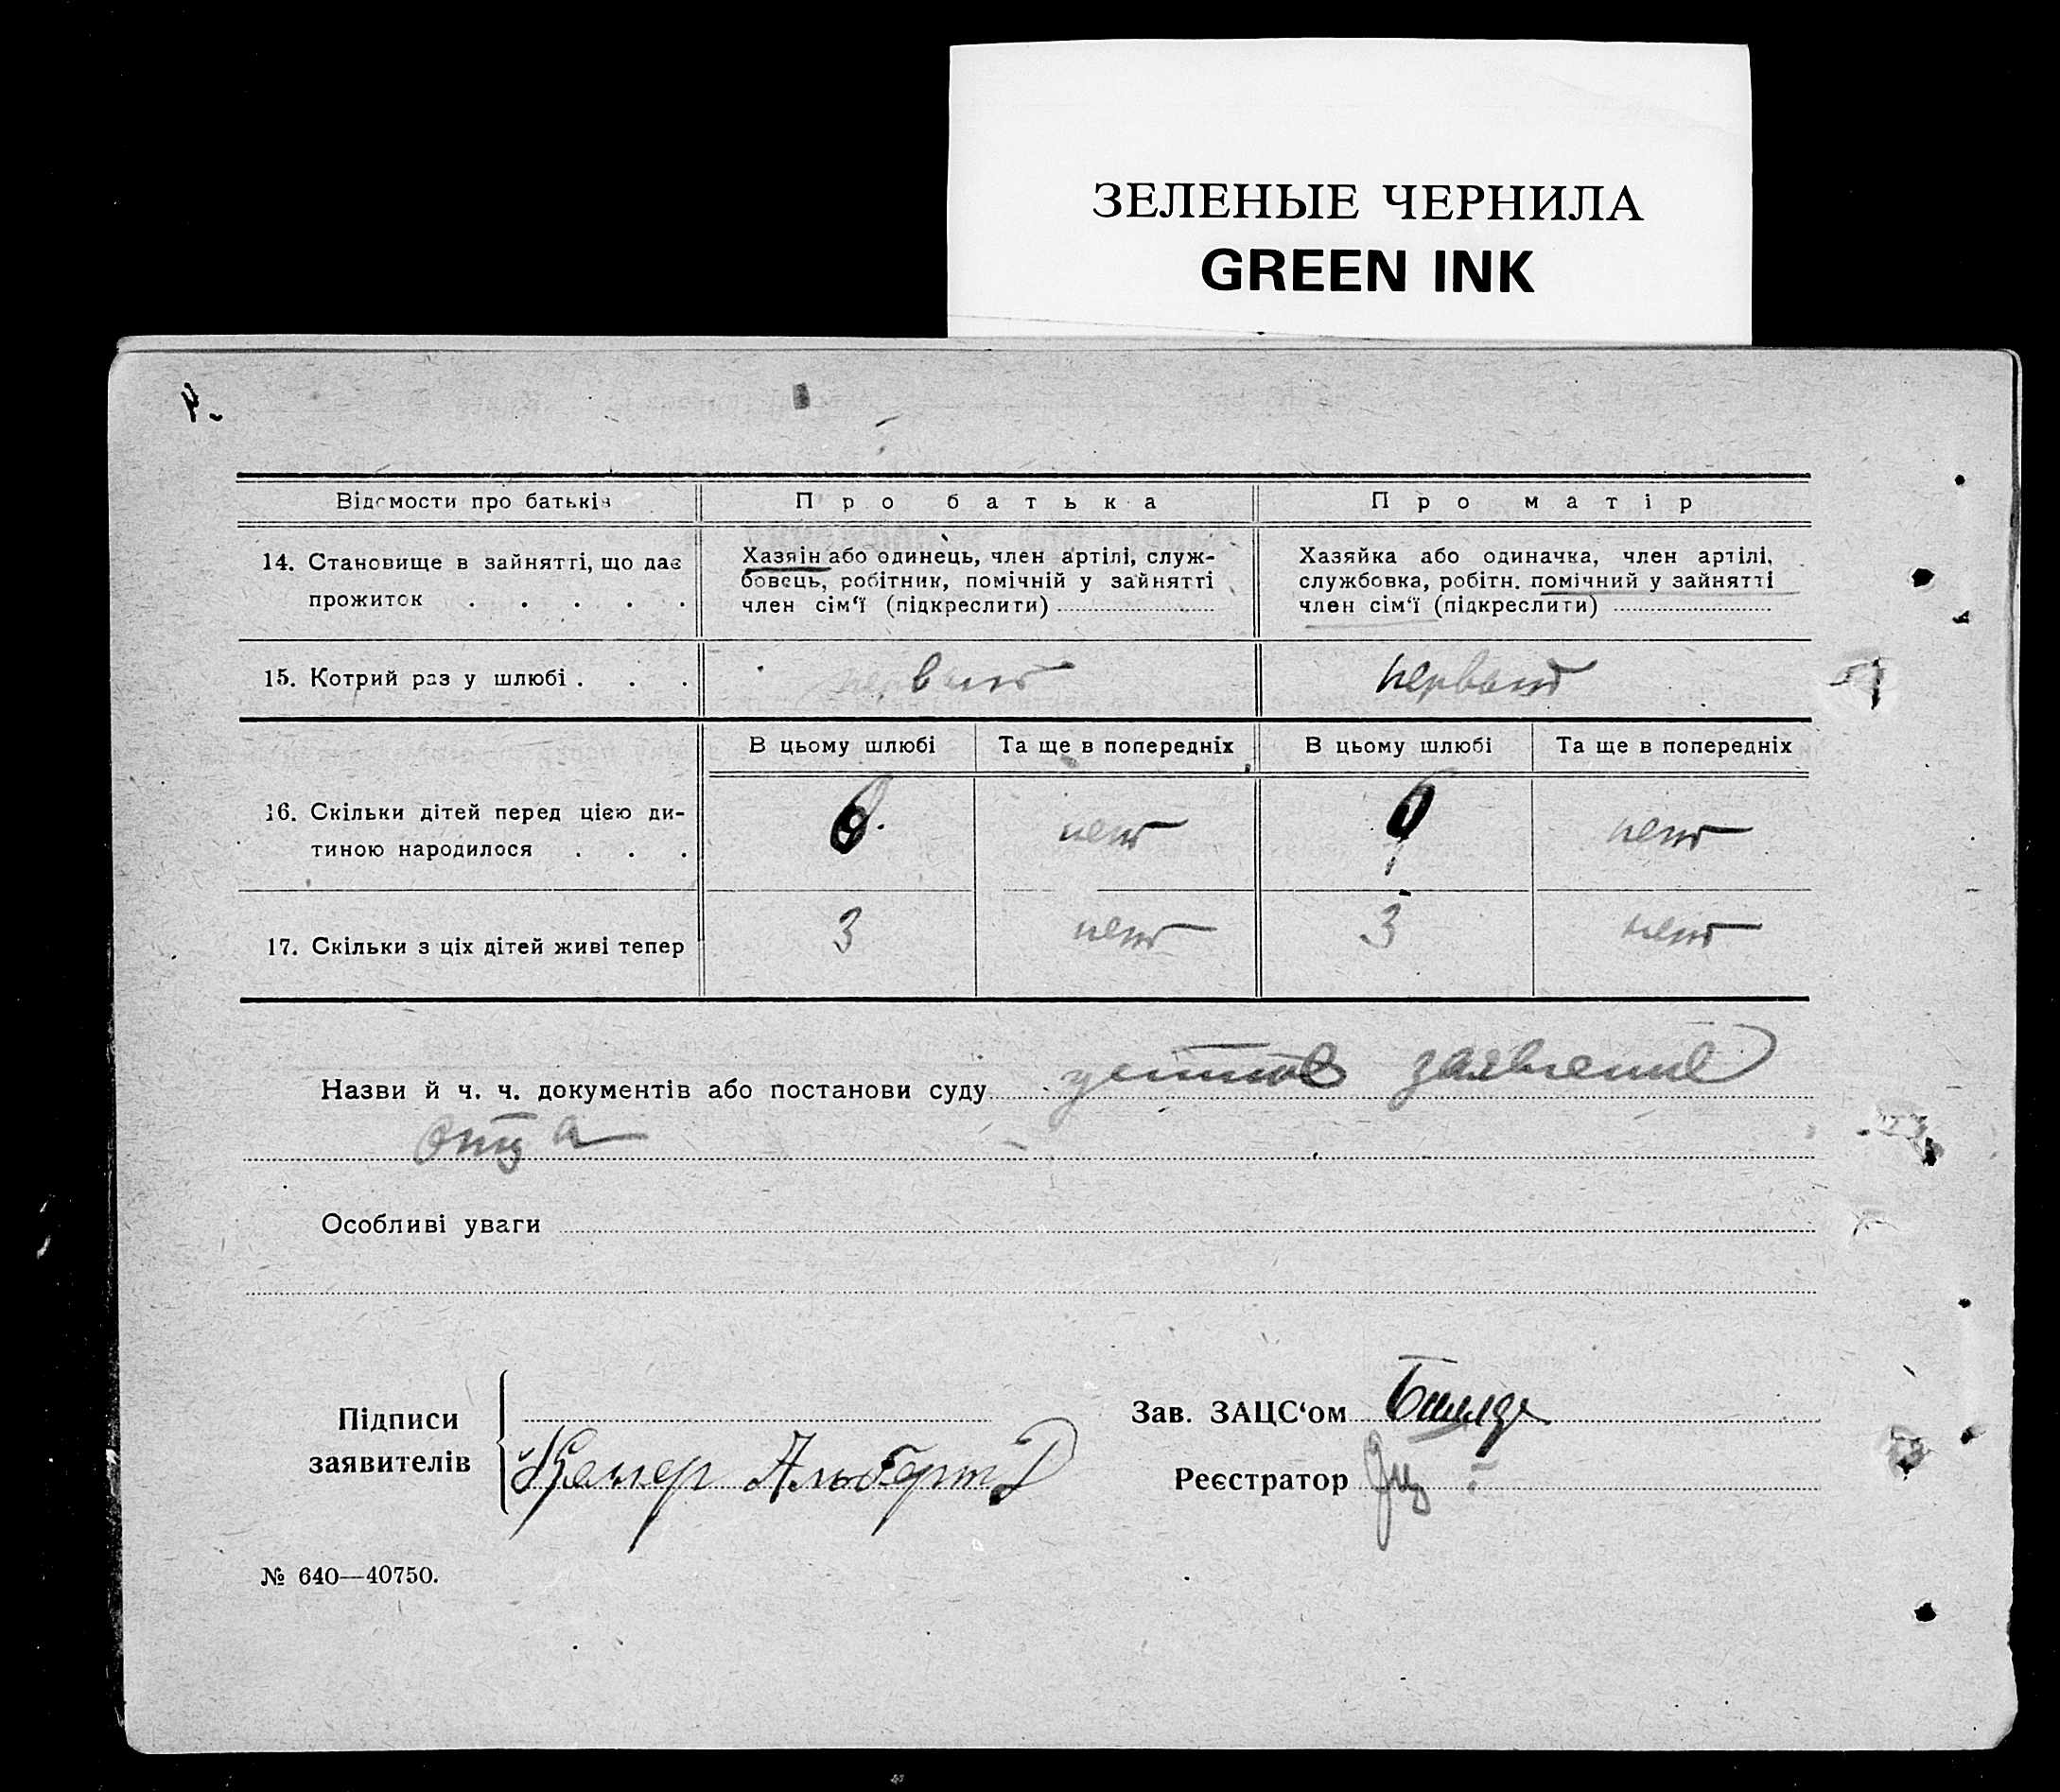 ЗЕЛЕНЫЕ ЧЕРНИЛА
GREEN INK
Відомости про батьків
Про батька
Про матір
14. Становище в зайнятті, що дає
прожиток . . . . .
Хазяін або одинець, член артілі, служ-
бовець, робітник, помічній у зайнятті
член сім‘ї (підкреслити)
Хазяйка або одиначка, член артілі,
службовка, робітн. помічний у зайнятті
член сім‘ї (підкреслити)
15. Котрий раз у шлюбі . . .
первый
первый
В цьому шлюбі
Та ще в попередніх
В цьому шлюбі
Та ще в попередніх
16. Скільки дітей перед цією ди-
тиною народилося . . .
6
нет
нет
17. Скільки з ціх дітей живі тепер
3
нет
3
нет
Назви й ч. ч. документів або постанови суду устное заявление
отца
Особливі уваги
Підписи
заявителів
Альберт
Зав. ЗАЦС‘ом
Реєстратор
№ 640—40750.